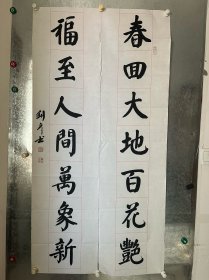 春回大地百花艷
福至人間萬象新